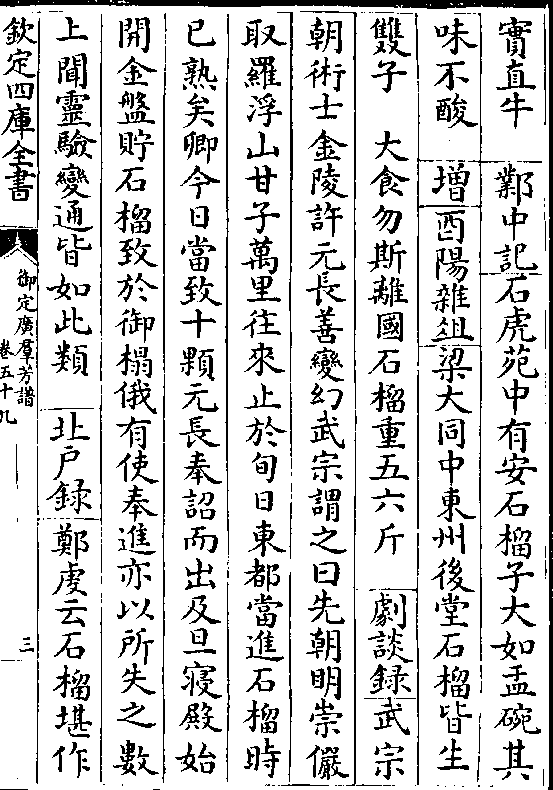 實直牛　鄴中記石虎苑中有安石榴子大如盂碗其
味不酸　增酉陽雜俎梁大同中東州後堂石榴皆生
雙子　大食勿斯離國石榴重五六斤　劇談録武宗
朝術士金陵許元長善變幻武宗謂之曰先朝明崇儼
取羅浮山甘子萬里往來止於旬日東都當進石榴時
已熟矣卿今日當致十顆元長奉詔而出及旦寝殿始
開金盤貯石榴致於御榻俄有使奉進亦以所失之數
上聞靈驗變通皆如此類　北户録鄭虔云石榴堪作
欽定四庫全書
御定廣羣芳譜
卷五十九
三